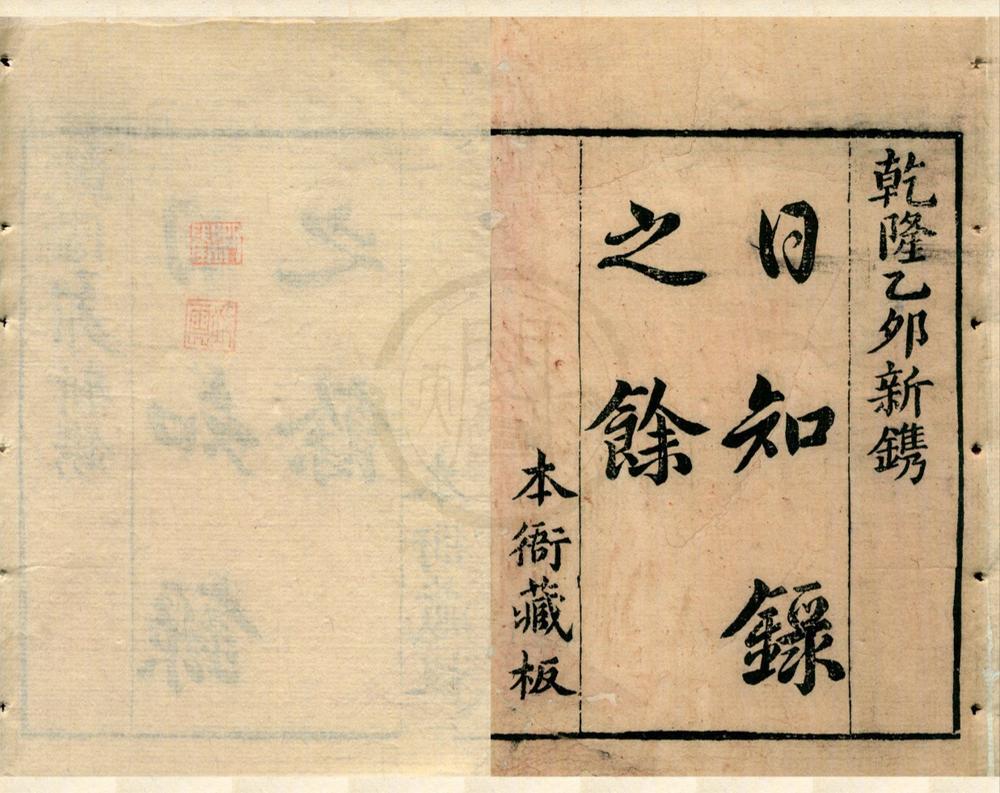 乾隆乙夘新鐫
日知錄
之餘
本衙藏板